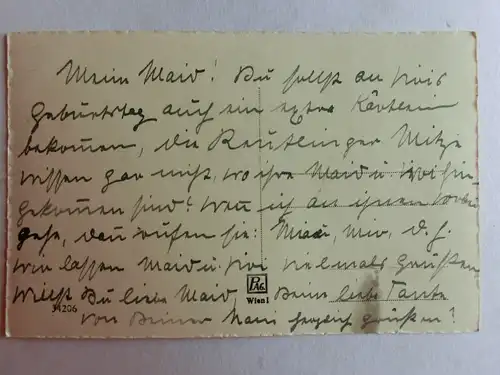 Mein Maid! Du sollst an Sissis
Geburtstag auch ein extra Kärtlein
bekommen, die Reutlinger Mitze
wissen gar nicht, wo ihre Maid u.
gekommen sind? Wenn ich an ihnen vorbei
gehe, dann rufen sie: Miau, Mio, d. h.
wir lassen Maid u. vielmals Grüßen
Willst Du liebe Maid, Deine liebe Tante
von Deiner herzlich grüßen?
PAG
Wien 1
34206